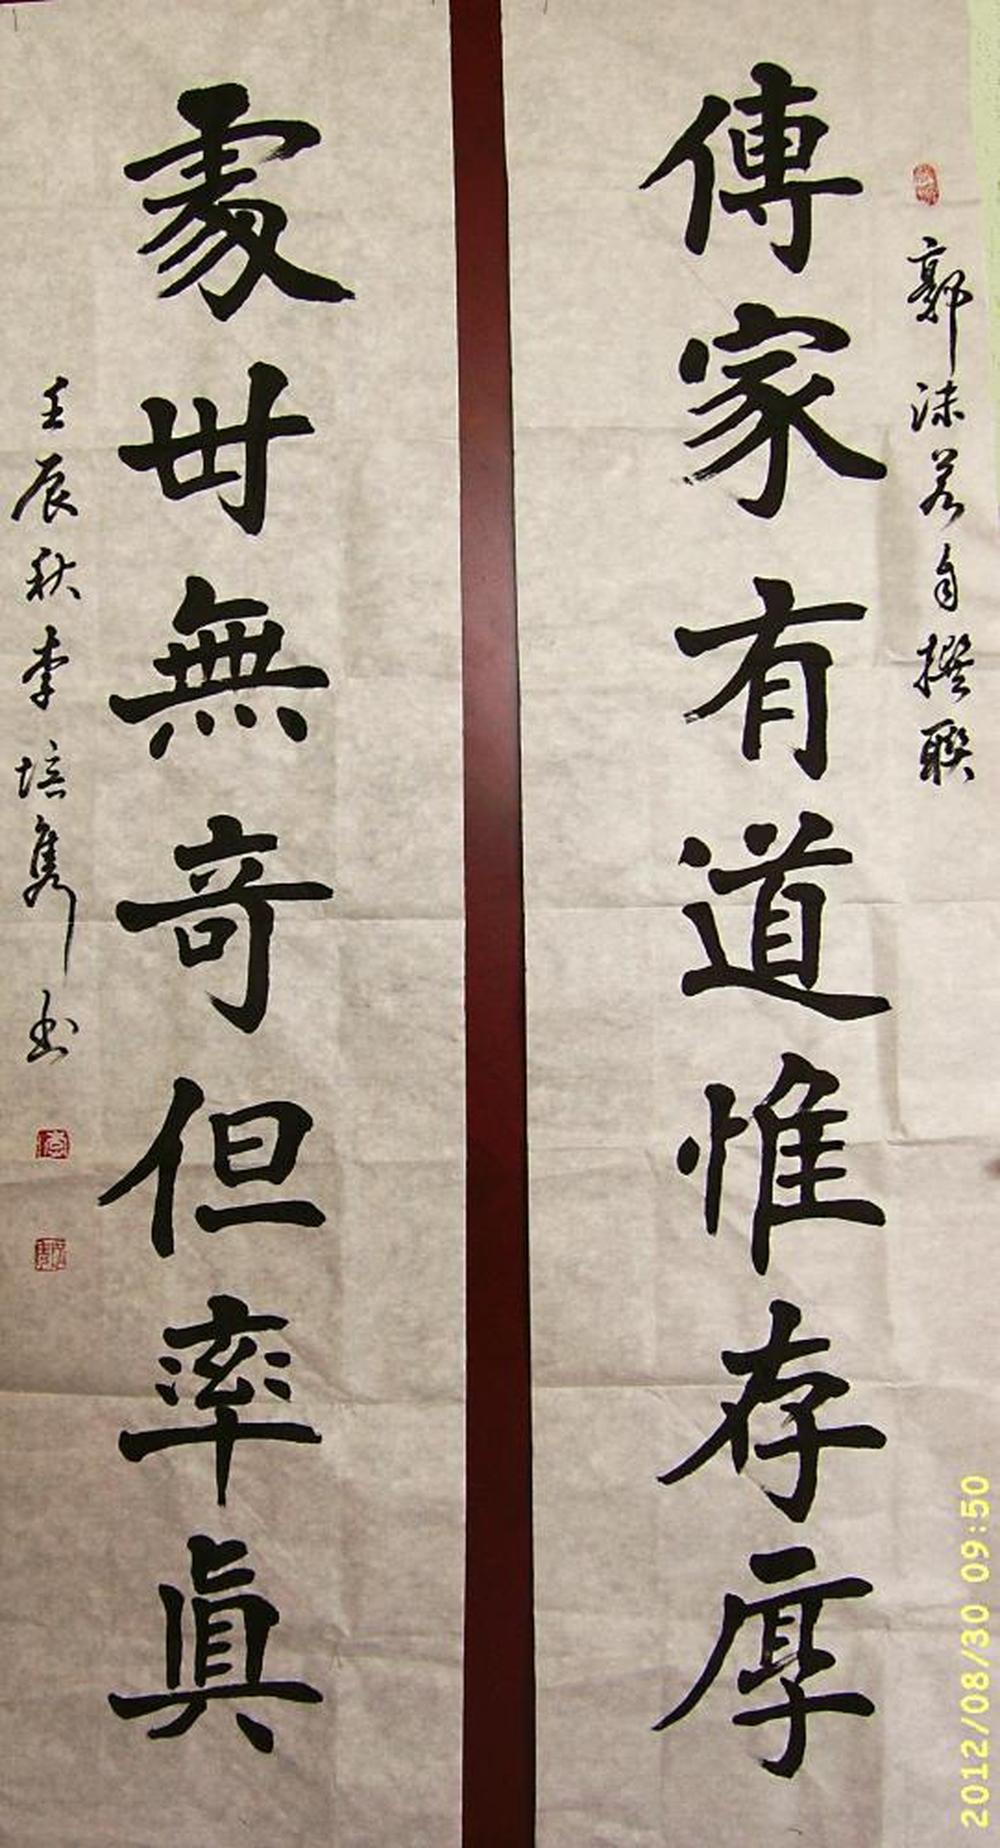 郭沫若自撰聯
傳家有道惟存厚
處世無奇但率真
壬辰秋李培隽书
2012/08/30 09:50